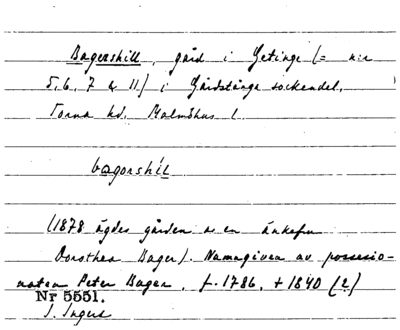 Bagershill, gård i Getinge (= n:r
5, 6, 7 & 11) i Gårdstånga sockendel,
Torna hd. Malmöhus l.
bagərshìl
(1878 ägdes gården av en änkefru
Dorothea Bager). Namngiven av possessio-
naten Peter Bager, f. 1786, † 1840 (?)
Nr 5551.
I. Ingers